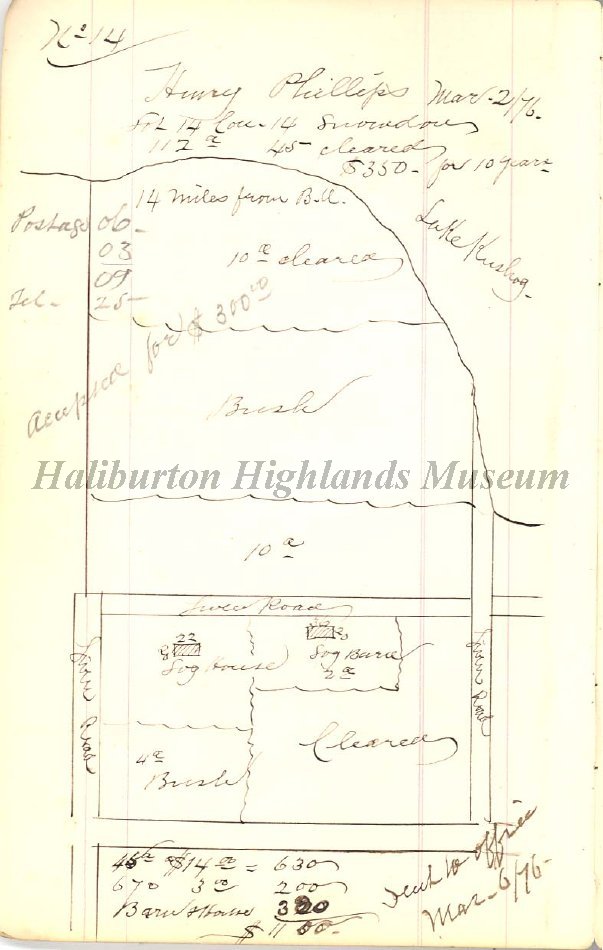 No 14
Henry Phillips Mar-2/76-
Lot 14 Con-14 Snowdon
112 a 45 cleared
$350- for 10 years
14 miles from B.H.
Lake Kushog-
Postage 06-
03
09
Tel- 25-
10 a cleared
Accepted for $300.00
Bush
Haliburton Highlands Museum
10 a
Road
22
Log House
Log Barn
2 a
Road
Road
4 a
Bush
Cleared
45 a $14 00 = 630
670 3 00 200
Barn & House 320
$11 00-
Sent to office
Mar-6/76-